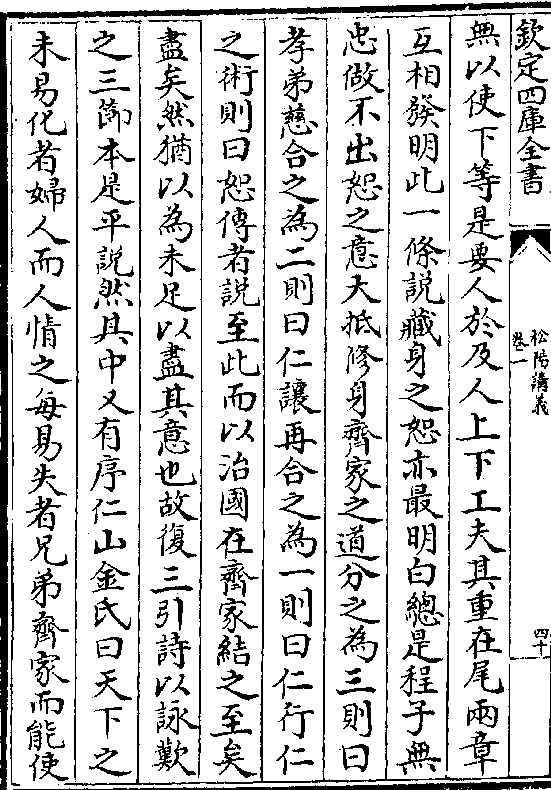 欽定四庫全書
松陽講義
卷一
四十
無以使下等是要人於及人上下工夫其重在尾兩章
互相發明此一條說藏身之恕亦最明白總是程子無
忠做不出恕之意大抵修身齊家之道分之為三則曰
孝弟慈合之為二則曰仁讓再合之為一則曰仁行仁
之術則曰恕傳者說至此而以治國在齊家結之至矣
盡矣然猶以為未足以盡其意也故復三引詩以詠歎
之三節本是平說然其中又有序仁山金氏曰天下之
未易化者婦人而人情之每易失者兄弟齊家而能使